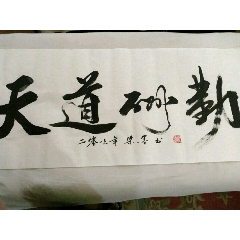 天道酬勤
二零 年 书